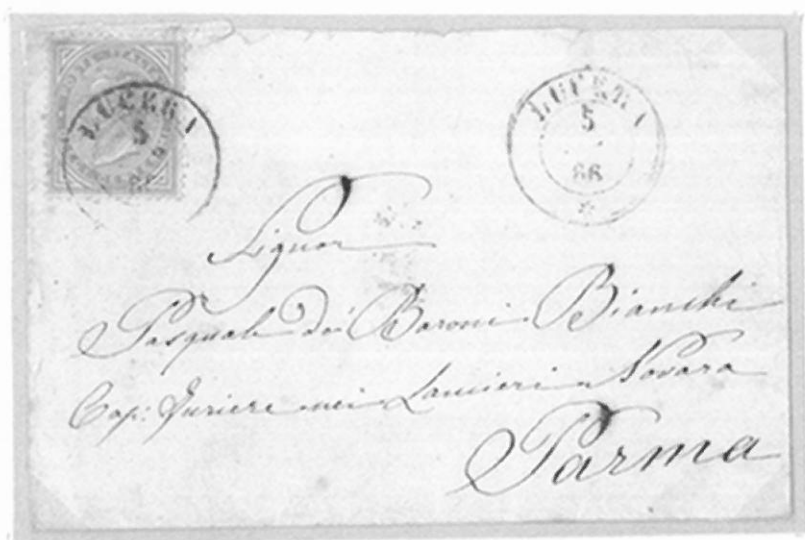 LUCERA
5
LUCERA
5
66
Signor
Pasquale de' Baroni Bianchi
Cap: Furiere nei Lancieri Novara
Parma